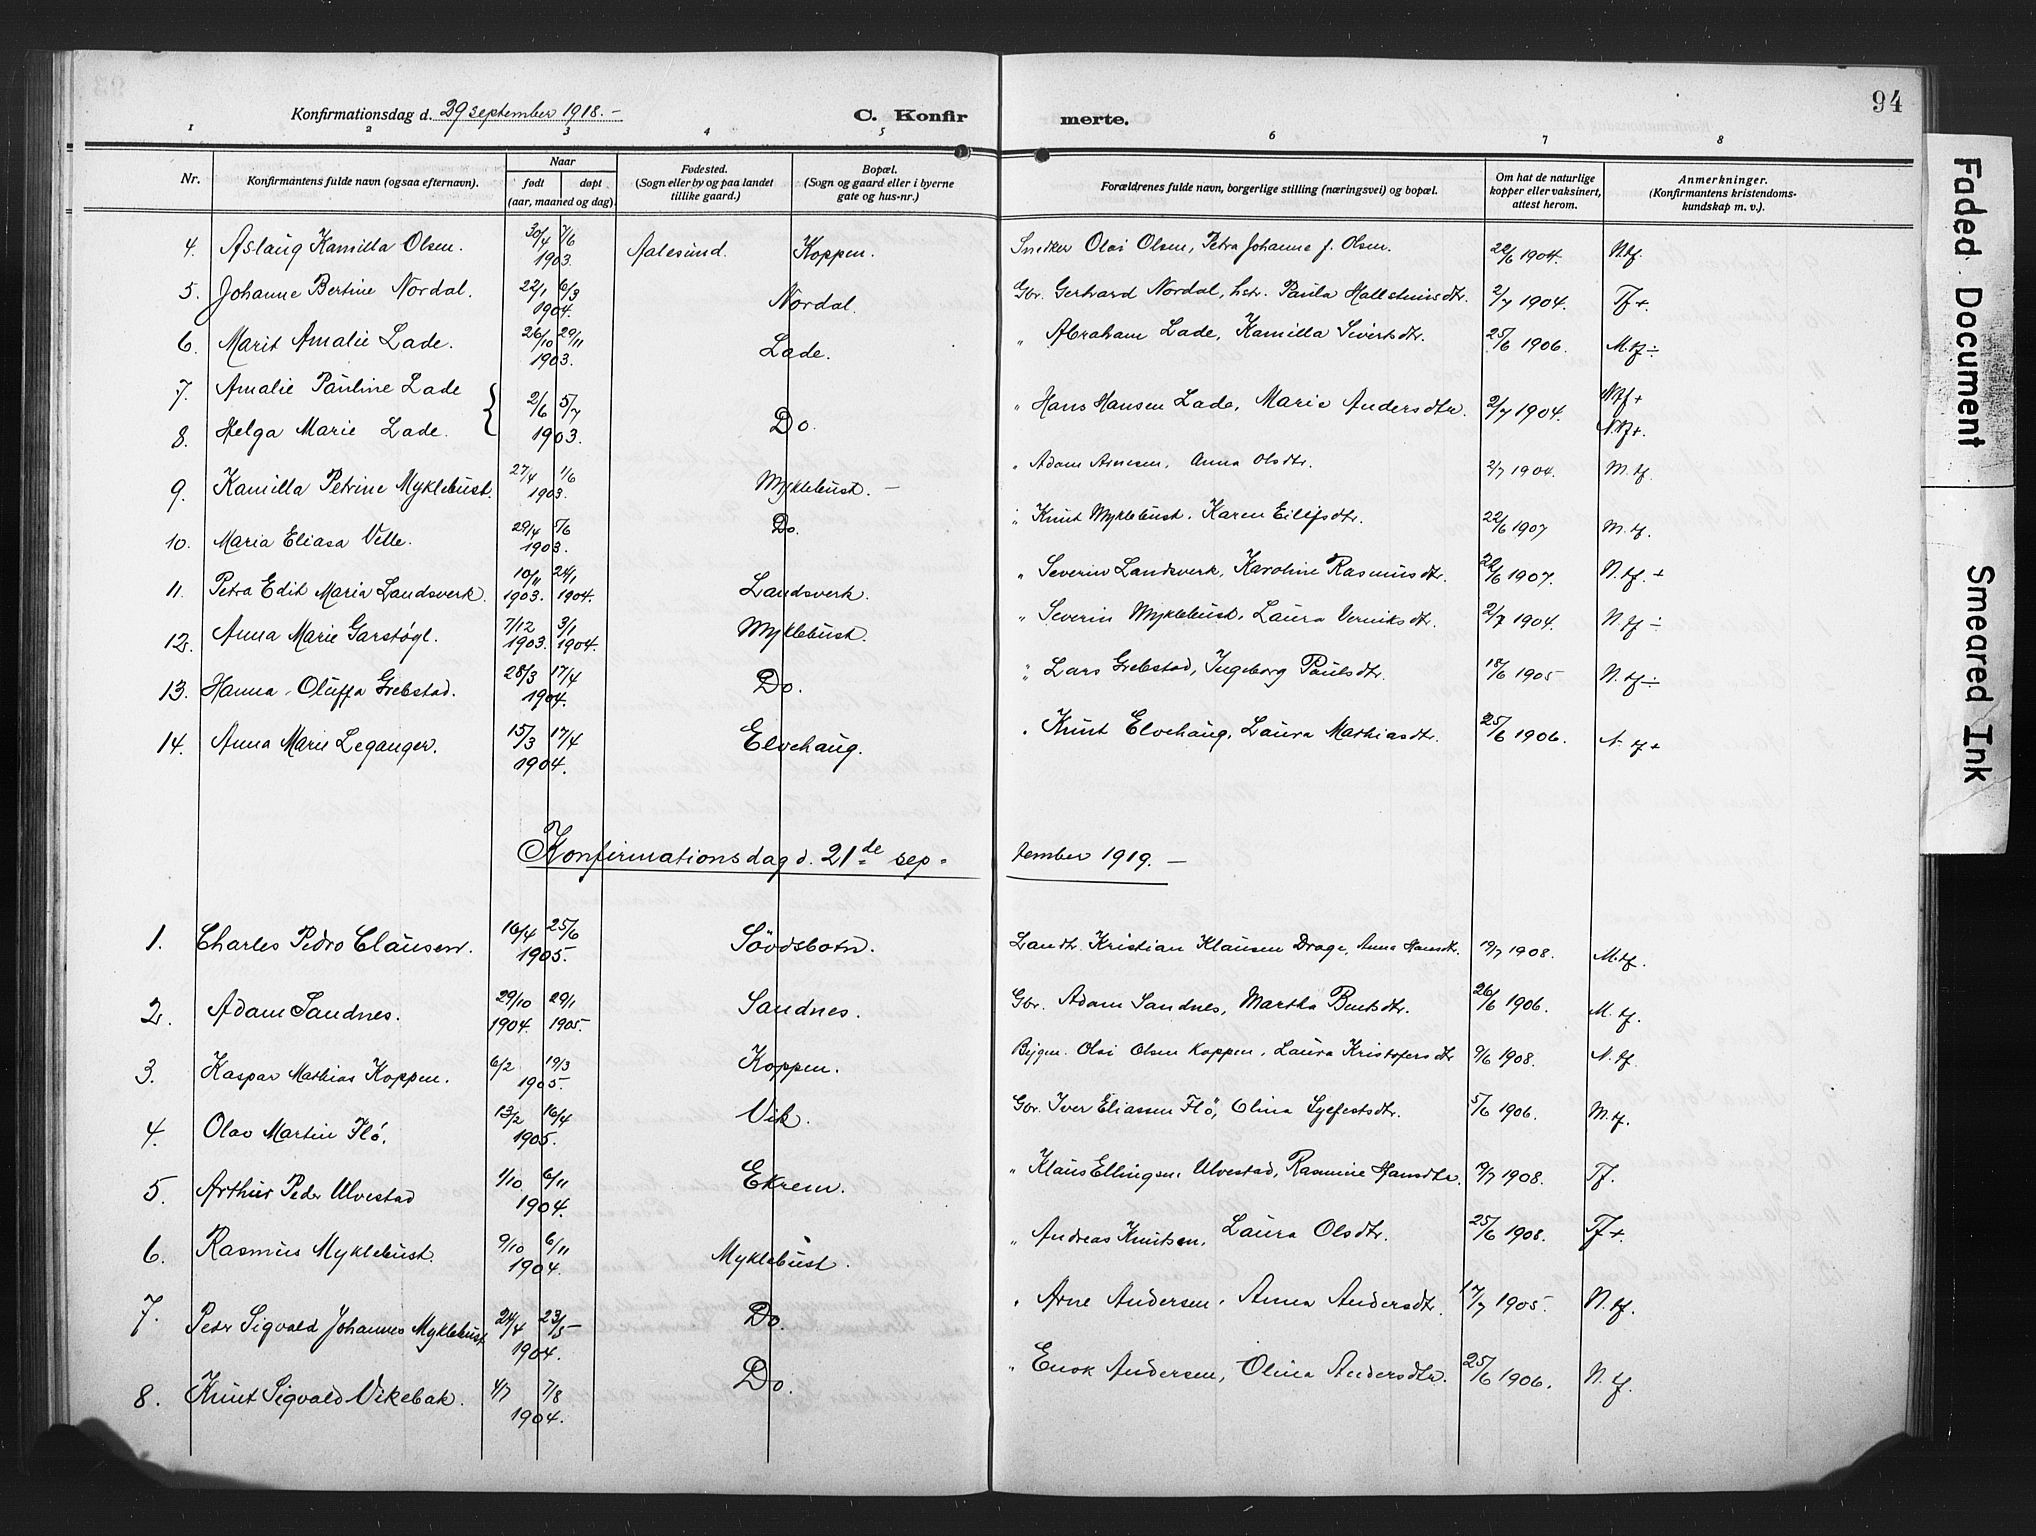 94
Konfirmationsdag d. 29 september 1918. –
C. Konfirmerte.
1 2 3 4 5 6 7 8
Nr.
Konfirmantens fulde navn (ogsaa efternavn).
Naar
født døpt
(aar, maaned og dag).
Fødested.
(Sogn eller by og paa landet
tillike gaard.)
Bopæl.
(Sogn og gaard eller i byerne
gate og hus-nr.)
Forældrenes fulde navn, borgerlige stilling (næringsvei) og bopæl.
Om hat de naturlige
kopper eller vaksinert,
attest herom.
Anmerkninger.
(Konfirmantens kristendoms-
kundskap m. v.).
4. Aslaug Kamilla Olsen. 30/4 7/6 1903. Aalesund. Koppen. Snedker Olai Olsen, Petra Johanne f. Olsen. 22/6 1904. N.tf.
5. Johanne Bertine Nordal. 22/1 6/3 1904. Nordal. Gbr. Gerhard Nordal, hstr. Paula Hallsteinsdtr. 2/7 1904. Tf+.
6. Marit Amalie Lade. 26/10 29/11 1903. Lade. " Abraham Lade, Kamilla Sivertsdtr. 25/6 1906. M.tf÷
7. Amalie Pauline Lade 2/6 5/7 1903. Do. " Hans Hansen Lade, Marie Andersdtr. 2/7 1904. N.tf+
8. Helga Marie Lade. N.tf+.
9. Kamilla Petrine Myklebust. 27/4 1/6 1903. Myklebust. – " Adam Arnesen, Anna Olsdtr. 2/7 1904. M.tf.
10. Maria Eliasa Velle. 29/4 5/6 1903. Do. " Knut Myklebust, Karen Eilefsdtr. 22/6 1907 M.tf.
11. Petra Edit Maria Landsverk. 10/11 1903. 24/1 1904. Landsverk. " Severin Landsverk, Karoline Rasmusdtr. 22/6 1907. N.tf.+
12. Anna Marie Garstøyl. 7/12 1903. 3/1 1904. Myklebust. " Severin Myklebust, Laura Verniksdtr. 2/7 1904. N.tf÷
13. Hanna Oluffa Grebstad. 28/3 17/4 1904. Do. " Lars Grebstad, Ingeborg Paulsdtr. 18/6 1905 N.tf÷
14. Anna Marie Leganger. 15/3 17/4 1904. Elvehaug. " Knut Elvehaug, Laura Mathiasdtr. 25/6 1906. N.tf+
Konfirmationsdag d. 21de september 1919. –
1. Charles Pedro Clausen. 16/4 25/6 1905. Søvdsbotn. Landh. Kristian Klausen Drage, Anna Hansdtr. 19/7 1908. M.tf.
2. Adam Sandnes. 29/10 1904. 29/1 1905. Sandnes. Gbr. Adam Sandnes, Martha Bentsdtr. 26/6 1906. M.tf.
3. Kaspar Mathias Koppen. 6/2 19/3 1905. Koppen. Bygm. Olai Olsen Koppen, Laura Kristofersdtr 9/6 1908. N.tf.
4. Olav Martin Flø. 13/2 16/4 1905. Vik. Gbr. Iver Eliassen Flø, Olina Syefestsdtr. 5/6 1906. M.tf.
5. Arthur Peder Ulvestad 1/10 6/11 1904. Ekrem. " Klaus Ellingsen Ulvestad, Rasmine Hansdtr. 19/7 1908. Tf.
6. Rasmus Myklebust. 9/10 6/11 1904. Myklebust. " Andreas Knutsen, Laura Olsdtr. 25/6 1908. Tf+.
7. Peter Sigvald Johannes Myklebust 24/4 23/5 – 1904. Do. " Arne Andersen, Anna Andersdtr. 17/7 1905. N.tf.
8. Knut Sigvald Vikebak. 4/7 7/8 1904. Do. " Enok Andersen, Olina Andersdtr. 25/6 1906. N.tf.
Faded Document
Smeared Ink